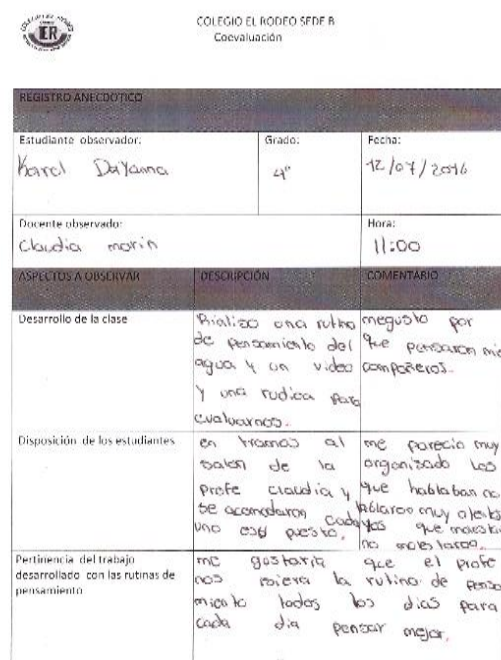 ER
COLEGIO EL RODEO SEDE B
Coevaluación
REGISTRO ANECDOTICO
Estudiante observador:
Karel Dayanna
Grado:
4°
Fecha:
12/07/2016
Docente observado:
Claudia morin
Hora:
11:00
ASPECTOS A OBSERVAR
DESCRIPCIÓN
COMENTARIO
Desarrollo de la clase
Rializo una rutino
de pensamiento del
agua y un video
y una rudica para
evaluarnos.
megusto por
que pensaron mis
compañeros.
Disposición de los estudiantes
en tramos al
salon de la
profe claudia y
se acomodaron cada
uno es puesto.
me parecio muy
organizado los
que hablaban no
muy
que
no molestaron.
Pertinencia del trabajo
desarrollado con las rutinas de
pensamiento
me gostaria que el profe
nos isiera la rutino de pensa
miento todos los dias para
cada dia pensar mejor.